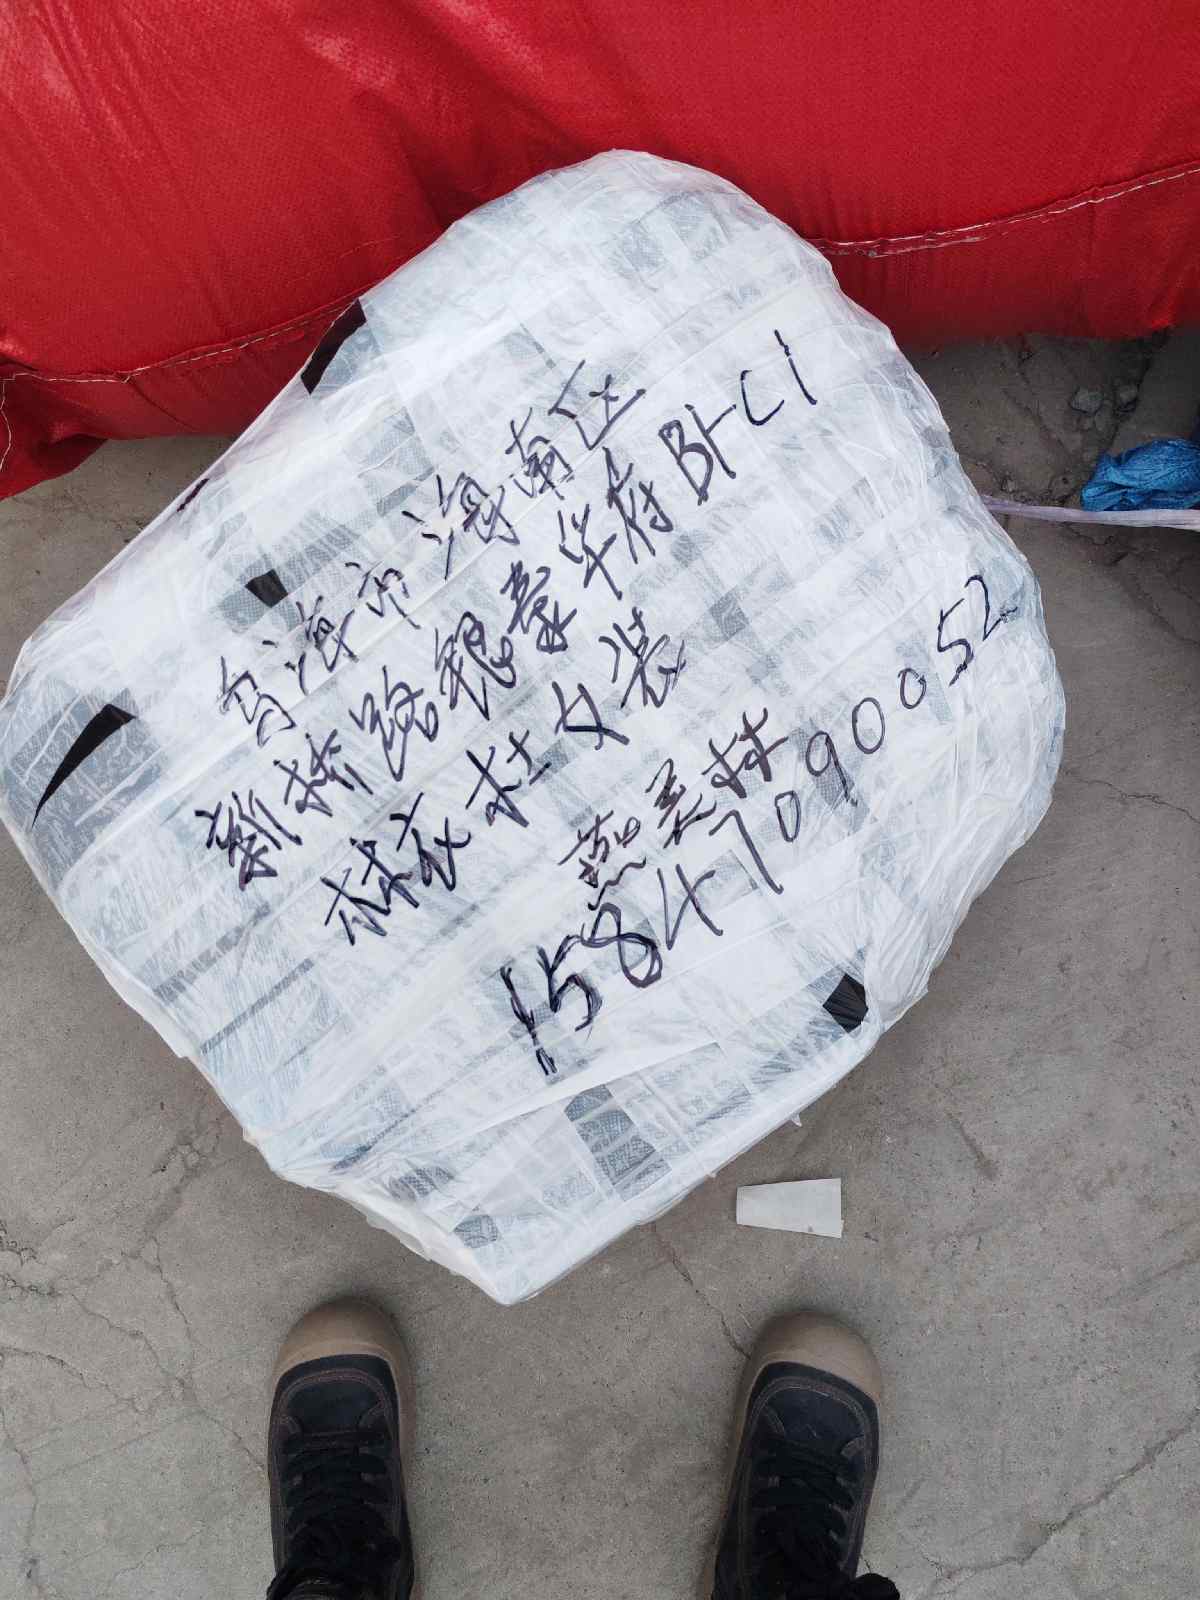 乌海市海南区
新桥路银豪华府BHC1
林衣社女装
燕美林
15847090052